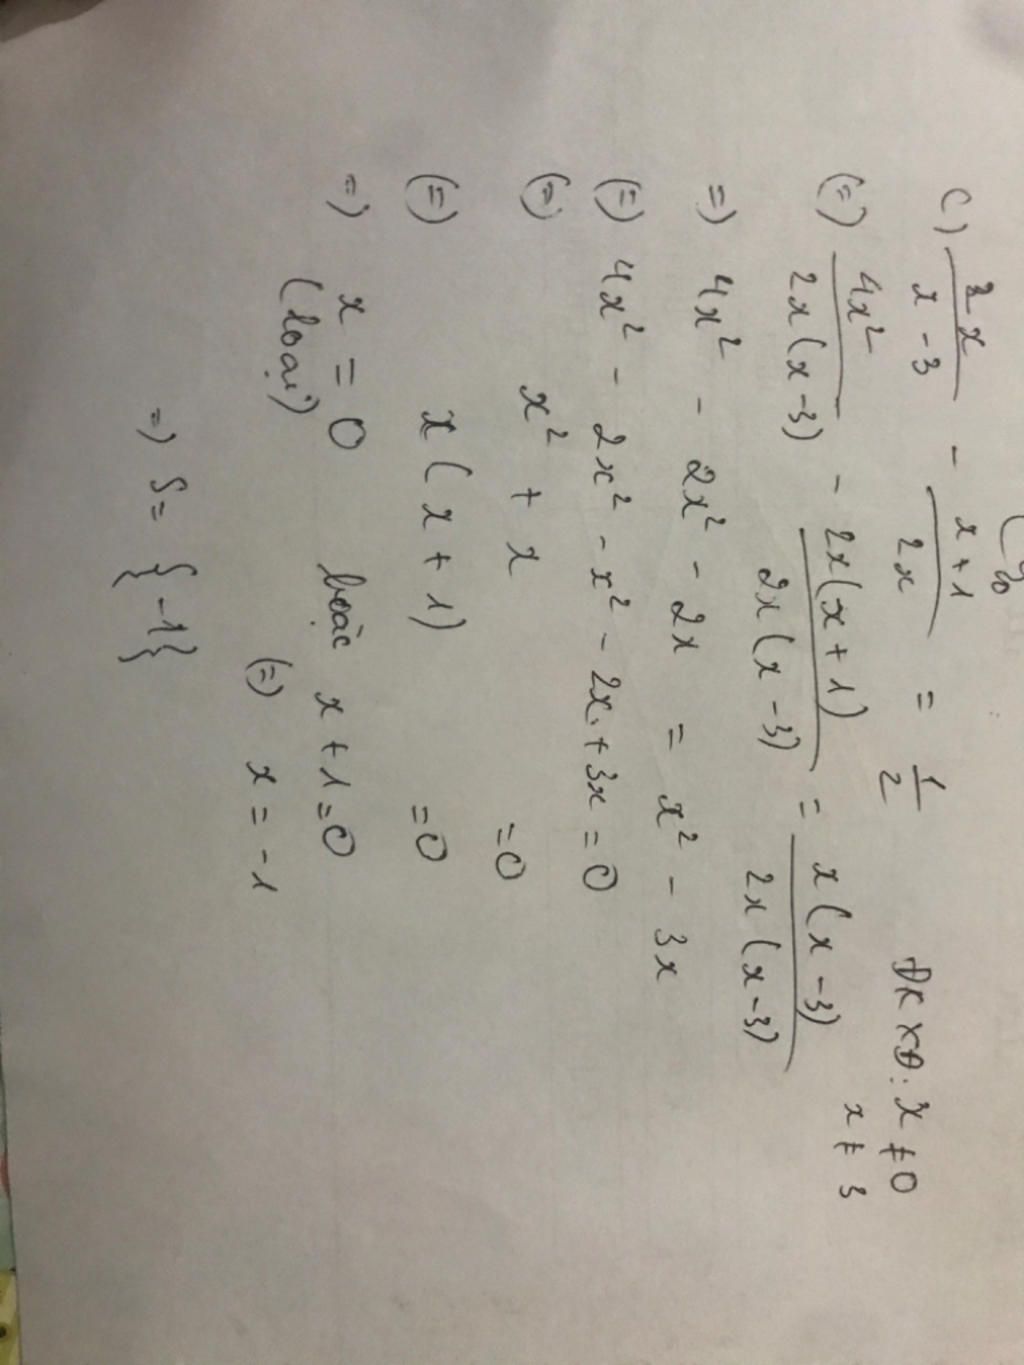 c) 2x/(x-3) - (x+1)/2x = 1/2 ĐKXĐ: x ≠ 0
x ≠ 3
(=) 4x²/2x(x-3) - 2x(x+1)/2x(x-3) = x(x-3)/2x(x-3)
=) 4x² - 2x² - 2x = x² - 3x
(=) 4x² - 2x² - x² - 2x + 3x = 0
(=) x² + x = 0
(=) x(x+1) = 0
=) x = 0 hoặc x+1=0
(loại) (=) x = -1
=) S = {-1}